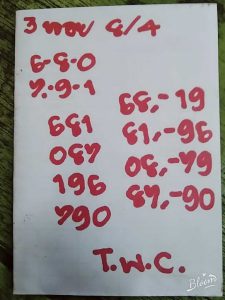 3 8/4
6-8-0
7.-9-1
681
087
196
790
68,-19
81,-96
08,-79
87,-90
T.W.C.
Bloom